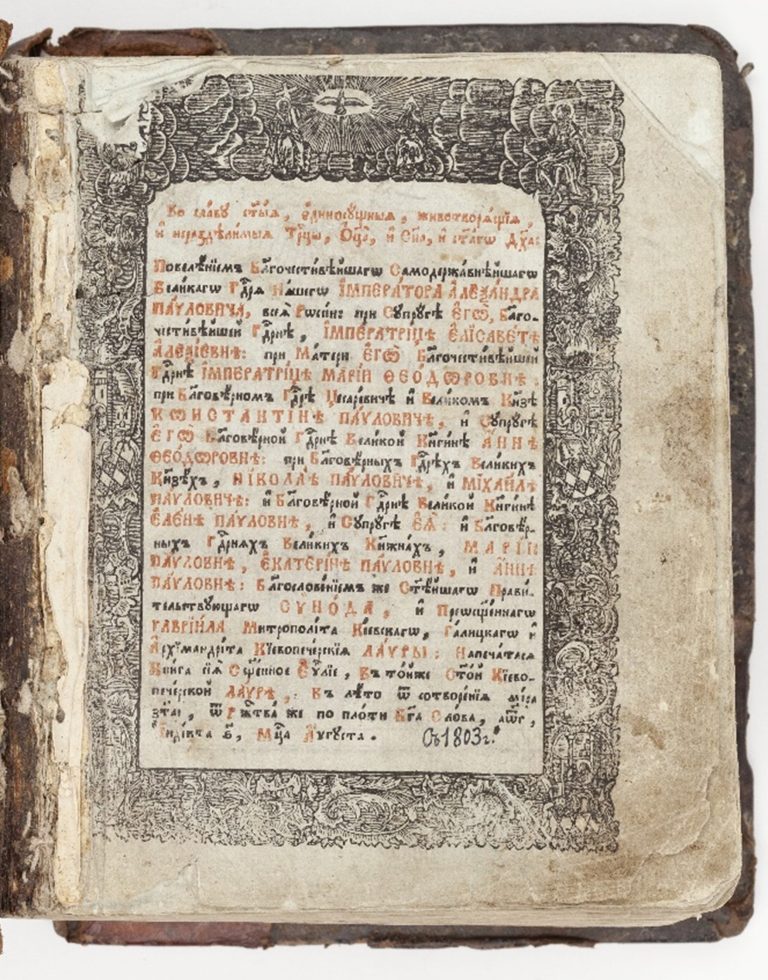 Во славу ст҃ыѧ, є҆диносꙋщныѧ, животворѧщїѧ,
и҆ нераздѣлимыѧ Трⷪ҇цы, Ѻ҆ц҃а̀, и҆ Сн҃а, и҆ ст҃а́гѡ Дх҃а:
Повелѣ́нїемъ Бл҃гочести́вѣйшагѡ Самодержа́внѣйшагѡ
Вели́кагѡ Гдⷭ҇рѧ На́шегѡ И҆МПЕРА́ТОРА А҆ЛЕѮА́НДРА
ПА́ѴЛОВИЧА, всеѧ̀ Рѡссі́и: при Сꙋпрꙋ́гѣ Є҆ГѠ̀, Бл҃го-
чести́вѣйшей Гдⷭ҇рнѣ, И҆МПЕРАТРИ́ЦѢ Є҆ЛІСАВЕ́ТѢ
А҆ЛЕѮІ́ЕВНѢ: при Ма́тери Є҆ГѠ̀ Бл҃гочести́вѣйшей
Гдⷭ҇рнѣ И҆МПЕРАТРИ́ЦѢ МАРІ́И ѲЕО́ДѠРОВНѢ:
при Бл҃говѣ́рномъ Гдⷭ҇рѣ Цесаре́вичѣ и҆ Вели́комъ Кн҃зѣ
КѠНСТАНТІ́НѢ ПА́ѴЛОВИЧѢ, и҆ Сꙋпрꙋ́гѣ
Є҆ГѠ̀ Бл҃говѣ́рной Гдⷭ҇рнѣ Вели́кой Кн҃ги́нѣ А҆́ННѢ
ѲЕО́ДѠРОВНѢ: при Бл҃говѣ́рныхъ Гдⷭ҇рѣхъ Вели́кихъ
Кн҃зѣ́хъ, НІКОЛА́Ѣ ПА́ѴЛОВИЧѢ, и҆ МІХАИ́ЛѢ
ПА́ѴЛОВИЧѢ: и҆ Бл҃говѣ́рной Гдⷭ҇рнѣ Вели́кой Кн҃ги́нѣ
Є҆ЛЕ́НѢ ПА́ѴЛОВНѢ, и҆ Сꙋпрꙋ́гѣ Є҆Ѧ̀: и҆ Бл҃говѣ́р-
ныхъ Гдⷭ҇рнѧхъ Вели́кихъ Кн҃жна́хъ, МАРІ́И
ПА́ѴЛОВНѢ, Є҆КАТЕРІ́НѢ ПА́ѴЛОВНѢ, и҆ А҆́ННѢ
ПА́ѴЛОВНѢ: Благослове́нїемъ же Ст҃ѣ́йшагѡ Прави́-
тельствꙋющагѡ СѴНО́ДА, и҆ Преѡсщ҃е́ннагѡ
ГАВРІИ́ЛА Митрополі́та Кі́евскагѡ, Га́лицкагѡ и҆
А҆рхїмандрі́та Кі́евопече́рскїѧ ЛА́ѴРЫ: Напеча́тасѧ
Кни́га сїѧ̀ Сщ҃е́нное Є҆ѵⷢ҇лїе, въ то́йже Ст҃о́й Кі́ево-
пече́рской ЛА́ѴРѢ,: въ лѣ́то ѿ сотворе́нїѧ мі́ра
҂зтаі, ѿ Ржⷭ҇тва́ же по пло́ти Бг҃а Сло́ва, ҂аѡг,
І҆нді́кта ѕ҃, Мцⷭ҇а А҆́ѵгꙋста.
Съ 1803 г.